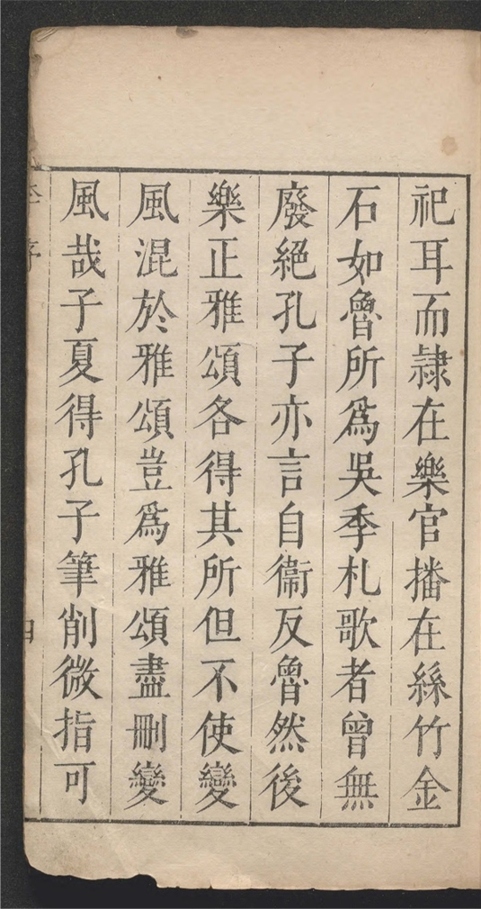 祀耳而隷在樂官播在絲竹金
石如魯所爲吳季札歌者曾無
廢絕孔子亦言自衞反魯然後
樂正雅頌各得其所但不使變
風混於雅頌豈爲雅頌盡刪變
風哉子夏得孔子筆削微指可
序
四